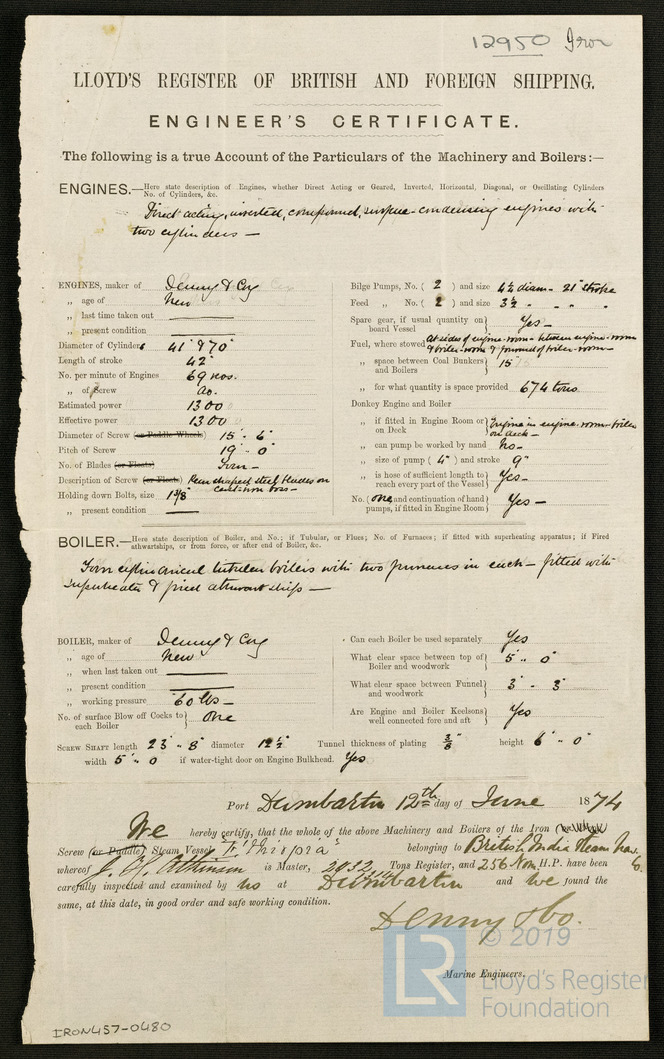 12950 Iron
LLOYD'S REGISTER OF BRITISH AND FOREIGN SHIPPING.
ENGINEER'S CERTIFICATE.
The following is a true Account of the Particulars of the Machinery and Boilers:—
ENGINES.—Here state description of Engines, whether Direct Acting or Geared, Inverted, Horizontal, Diagonal, or Oscillating Cylinders
No. of Cylinders, &c.
Direct acting, inverted, compound, surface-condensing engines with
two cylinders —
ENGINES, maker of Denny & Coy
„ age of New
„ last time taken out
„ present condition
Diameter of Cylinders 41" & 70"
Length of stroke 42"
No. per minute of Engines 69 revs.
„ of Screw do.
Estimated power 1300
Effective power 1300
Diameter of Screw (or Paddle Wheels) 15' - 6"
Pitch of Screw 19' - 0"
No. of Blades (or Floats) Four —
Description of Screw (or Floats) Pear shaped steel blades on
cast iron boss —
Holding down Bolts, size 1 3/8
„ present condition
Bilge Pumps, No. ( 2 ) and size 4½ diam - 21" stroke
Feed „ No. ( 2 ) and size 3½ „ - „ „
Spare gear, if usual quantity on
board Vessel Yes —
Fuel, where stowed At sides of engine-room - between engine-room
& boiler-room & forward of boiler-room —
„ space between Coal Bunkers
and Boilers 15"
„ for what quantity is space provided 674 tons
Donkey Engine and Boiler
„ if fitted in Engine Room or
on Deck Engine in engine-room - boiler
on deck —
„ can pump be worked by hand No —
„ size of pump ( 4" ) and stroke 9"
„ is hose of sufficient length to
reach every part of the Vessel Yes —
„ No. (one) and continuation of hand
pumps, if fitted in Engine Room Yes —
BOILER.—Here state description of Boiler, and No.; if Tubular, or Flues; No. of Furnaces; if fitted with superheating apparatus; if Fired
athwartships, or from force, or after end of Boiler, &c.
Four cylindrical tubular boilers with two furnaces in each — fitted with
superheater & fired athwart ships —
BOILER, maker of Denny & Coy
„ age of New
„ when last taken out
„ present condition
„ working pressure 60 lbs —
No. of surface Blow off Cocks to
each Boiler One
Can each Boiler be used separately Yes
What clear space between top of
Boiler and woodwork 5' „ 0"
What clear space between Funnel
and woodwork 3' - 3"
Are Engine and Boiler Keelsons
well connected fore and aft Yes
SCREW SHAFT length 23' „ 8" diameter 12½" Tunnel thickness of plating 3/8" height 6' „ 0"
width 5' „ 0 if water-tight door on Engine Bulkhead. Yes
Port Dumbarton 12th day of June 1874
We hereby certify, that the whole of the above Machinery and Boilers of the Iron
Screw (or Paddle) Steam Vessel "Ethiopia" belonging to British India Steam Nav. Co.
whereof J. H. Atkinson is Master, 2032 Tons Register, and 256 Nom. H.P. have been
carefully inspected and examined by us at Dumbarton and we found the
same, at this date, in good order and safe working condition.
Denny & Co.
Marine Engineers.
LR © 2019
Lloyd's Register
Foundation
IRON457-0480